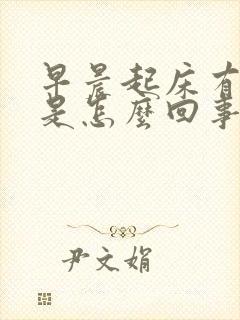 早晨起床有
是怎麼回事
尹文娟